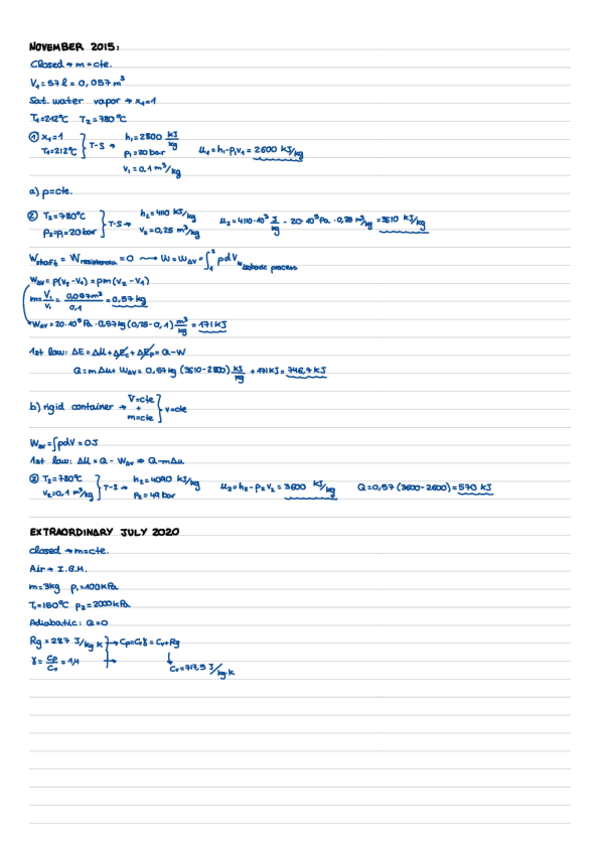 NOVEMBER 2015:
Closed → m=cte.
V₁=57 l = 0,057 m³
Sat. water vapor → x₁=1
T₁=212°C T₂=780°C
① x₁=1 T₁=212°C } T-S → h₁=2800 kJ/kg p₁=20 bar v₁=0,1 m³/kg u₁=h₁-p₁v₁ = 2600 kJ/kg
a) p=cte.
② T₂=780°C p₂=p₁=20 bar } T-S → h₂=4110 kJ/kg v₂=0,25 m³/kg u₂=4110·10³ J/kg - 20·10⁵Pa·0,25 m³/kg = 3610 kJ/kg
Wshaft = Wresistencia = 0 ⟶ W=WΔV=∫₁² pdV isobaric process
WΔV=p(V₂-V₁)=pm(v₂-v₁)
m=V₁/v₁ = 0,057m³/0,1 = 0,57 kg
WΔV=20·10⁵ Pa·0,57kg(0,25-0,1) m³/kg = 171 KJ
1st law: ΔE=ΔU+ΔEc+ΔEp=Q-W
Q=mΔu+WΔV=0,57kg (3610-2600) kJ/kg + 171KJ=746,7 KJ
b) rigid container → V=cte + m=cte } v=cte
WΔV=∫pdV=0J
1st law: ΔU=Q-WΔV ⇒ Q=mΔu
② T₂=780°C v₂=0,1 m³/kg } T-S → h₂=4090 kJ/kg p₂=49 bar u₂=h₂-p₂v₂=3600 kJ/kg Q=0,57(3600-2600)=570 KJ
EXTRAORDINARY JULY 2020
closed → m=cte.
Air → I.G.M.
m=3kg p₁=100KPa
T₁=150°C p₂=2000KPa
Adiabatic: Q=0
Rg=287 J/kg·K → Cp=Cvγ=Cv+Rg
γ=Cp/Cv=1,4 → Cv=717,5 J/kg·K